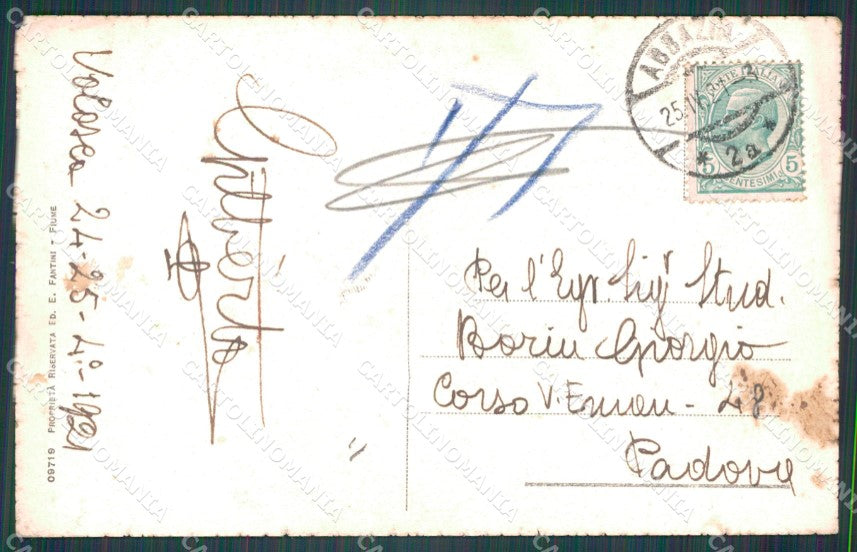 Volosca 24-25-4º-1921
Gilberto
09719 PROPRIETÀ RISERVATA ED. E. FANTINI - FIUME
ABBAZIA
25. IV.
* 2a *
POSTE ITALIANE
5 5
CENTESIMI
Per l'Egr. Sigr Stud.
Boriu Giorgio
Corso V. Eman - 48
Padova
CARTOLINOMANIA